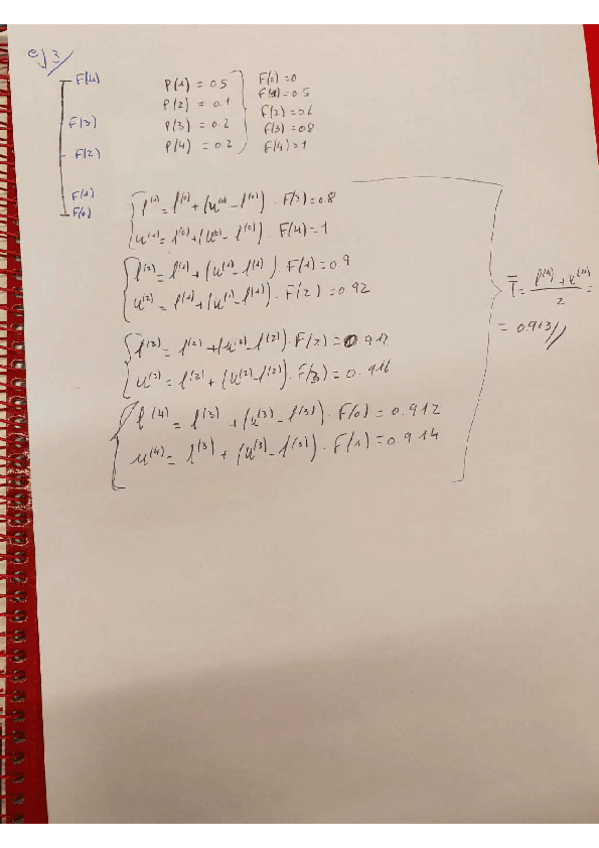 ej3
F(4)
F(3)
F(2)
F(1)
F(0)
P(1) = 0.5
P(2) = 0.1
P(3) = 0.2
P(4) = 0.2
F(0)=0
F(1)=0.5
F(2)=0.6
F(3)=0.8
F(4)=1
l⁽¹⁾ = l⁽⁰⁾ + (u⁽⁰⁾ - l⁽⁰⁾) · F(3) = 0.8
u⁽¹⁾ = l⁽⁰⁾ + (u⁽⁰⁾ - l⁽⁰⁾) · F(4) = 1
l⁽²⁾ = l⁽¹⁾ + (u⁽¹⁾ - l⁽¹⁾) · F(1) = 0.9
u⁽²⁾ = l⁽¹⁾ + (u⁽¹⁾ - l⁽¹⁾) · F(2) = 0.92
l⁽³⁾ = l⁽²⁾ + (u⁽²⁾ - l⁽²⁾) · F(2) = 0.912
u⁽³⁾ = l⁽²⁾ + (u⁽²⁾ - l⁽²⁾) · F(3) = 0.916
l⁽⁴⁾ = l⁽³⁾ + (u⁽³⁾ - l⁽³⁾) · F(0) = 0.912
u⁽⁴⁾ = l⁽³⁾ + (u⁽³⁾ - l⁽³⁾) · F(1) = 0.914
T̄ = (l⁽⁴⁾ + u⁽⁴⁾) / 2 =
= 0.913//